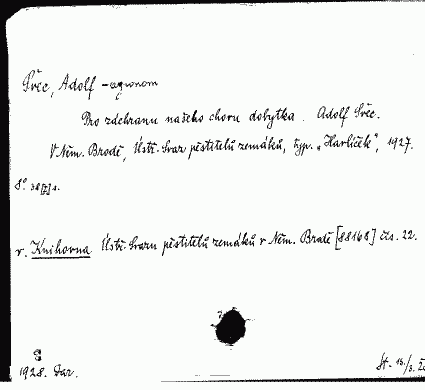 Švec, Adolf – agronom
Pro záchranu našeho chovu dobytka. Adolf Švec.
V Něm. Brodě, Ústř. Svaz pěstitelů zemáků, typ. „Havlíček", 1927.
8° 38 [I] s.
v. Knihovna Ústř. Svazu pěstitelů zemáků v Něm. Brodě [88168] čís. 22.
1928. Dar.
St. 13/3.